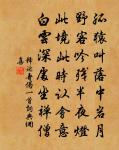 孤猿叫落中岩月
野客吟残半夜灯
此境此时谁会意
白云深处坐禅僧